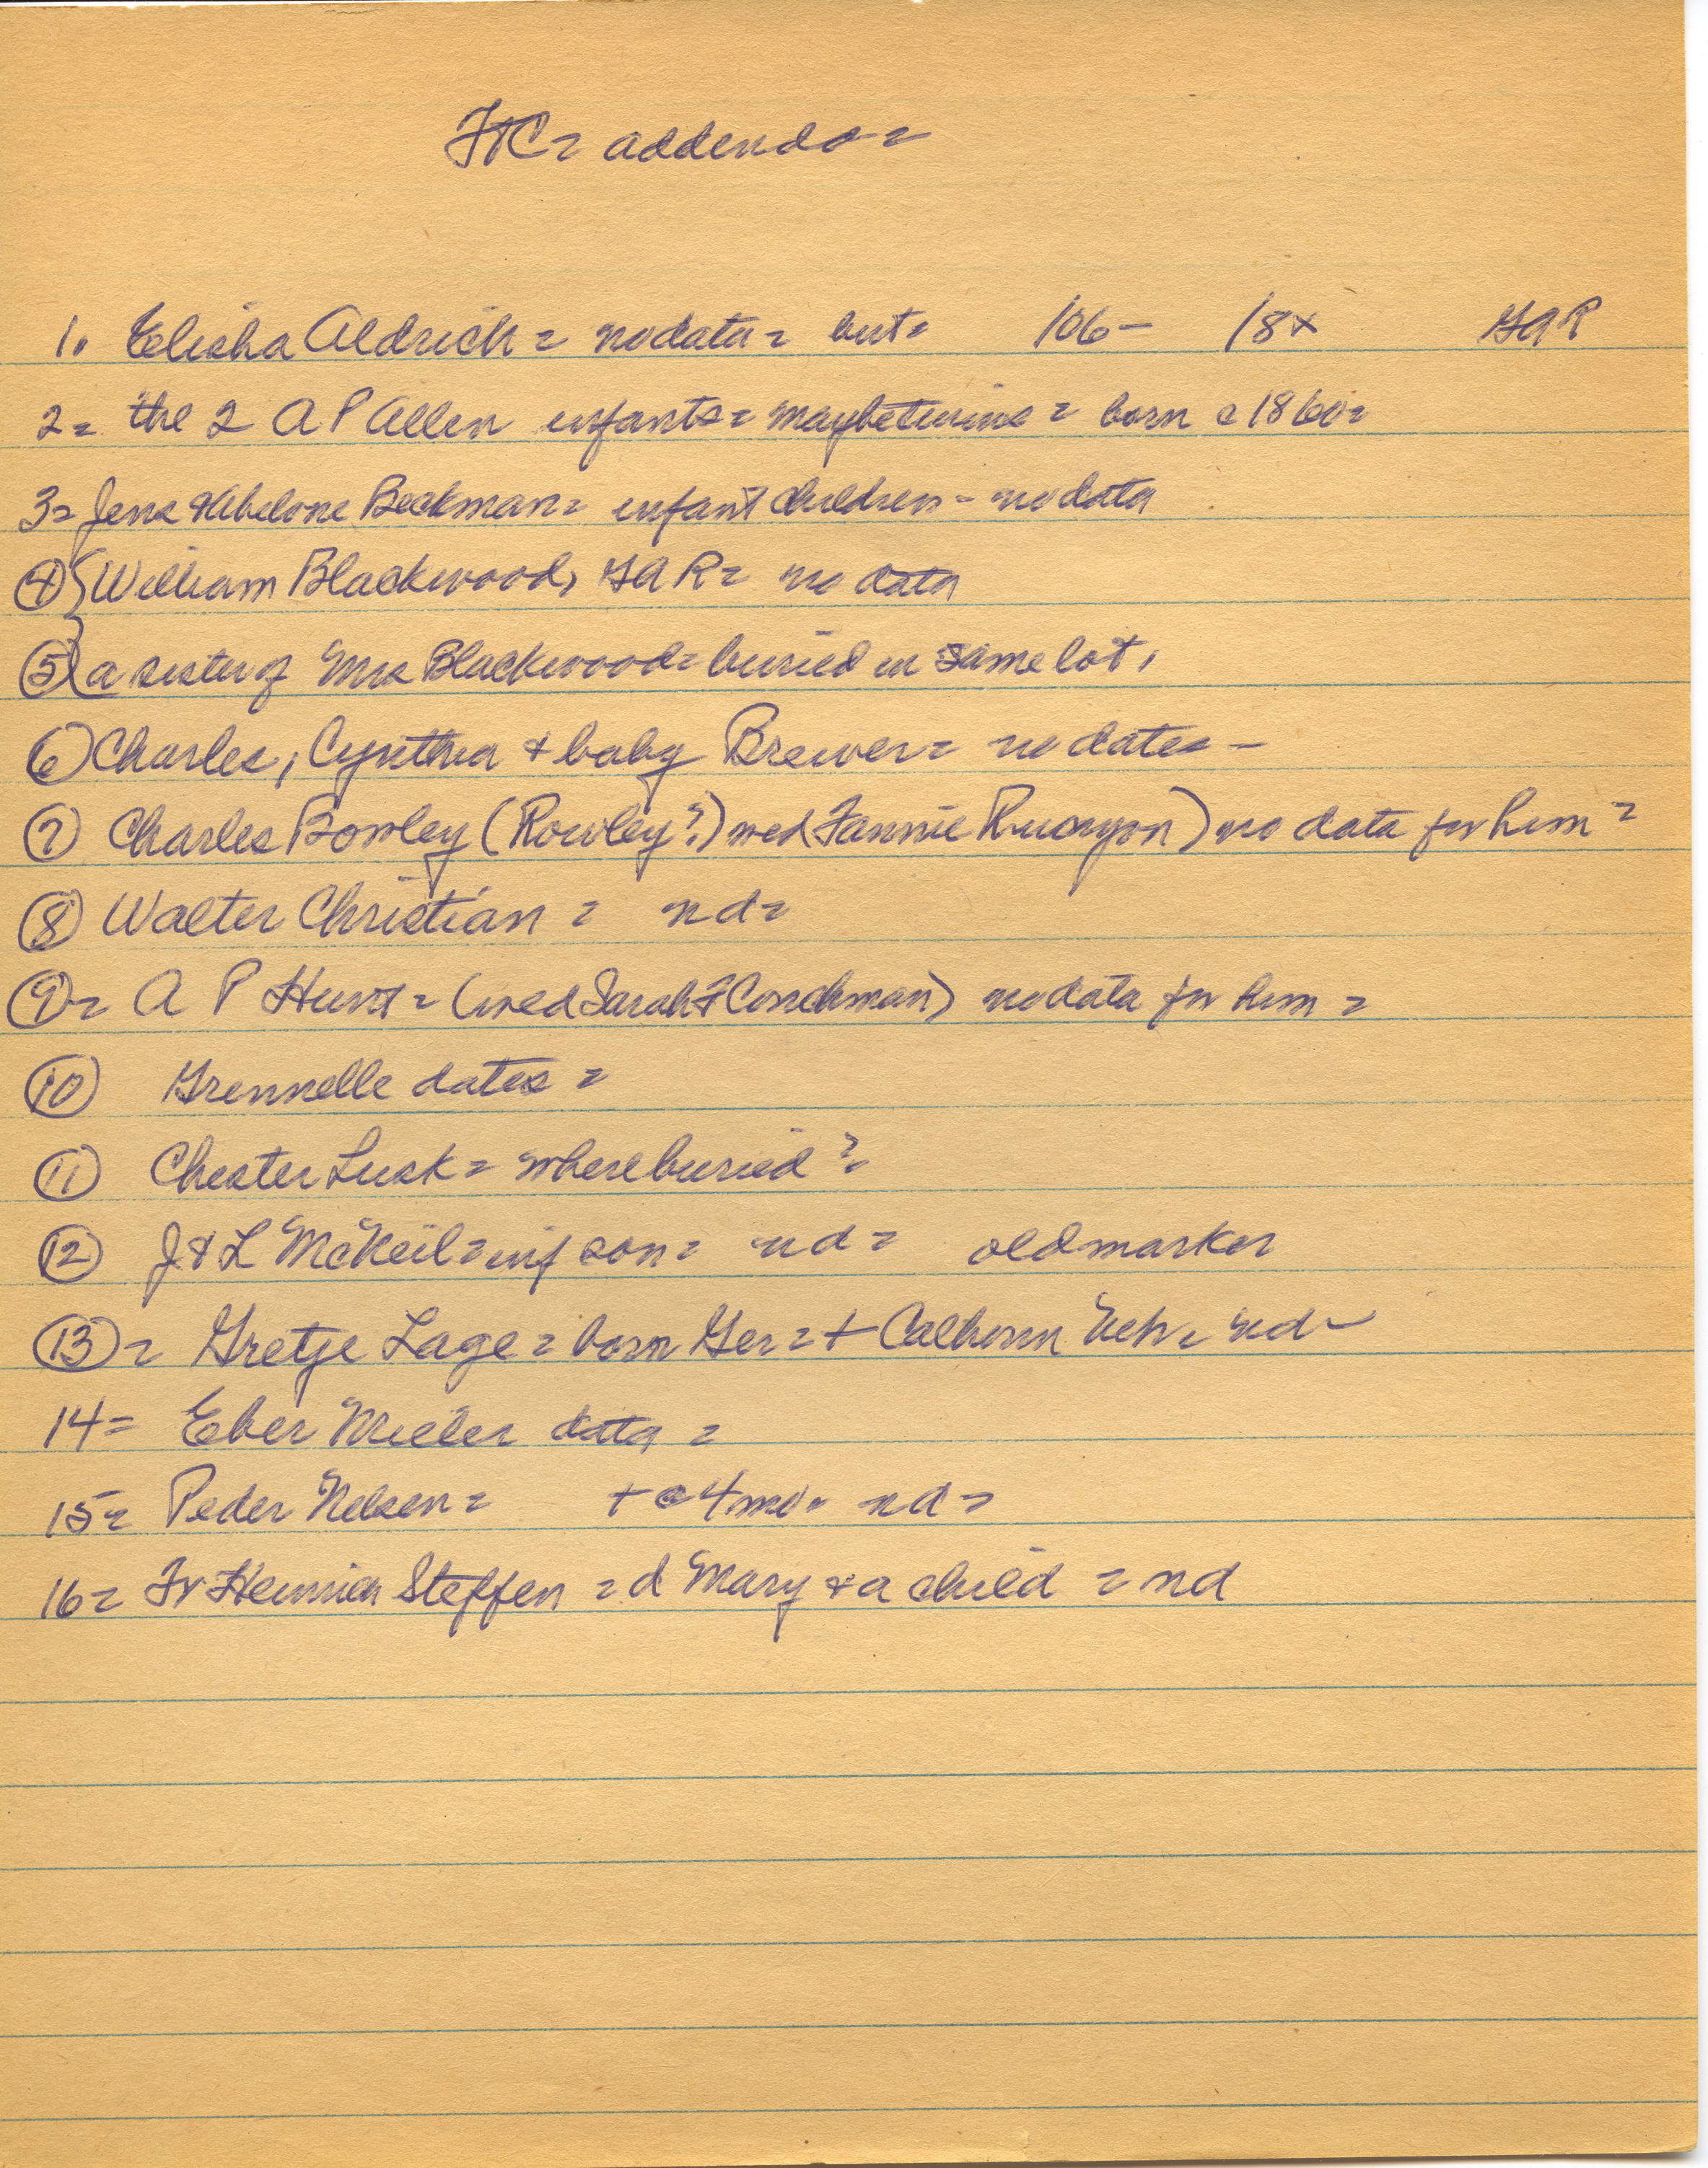 FtC = addenda =
1. Elisha Aldrich = no data = but = 106 – 18x GAR
2 = the 2 A P Allen infants = maybe twins = born c 1860 =
3 = Jens & Abelone Beckman = infant children – no data
④ William Blackwood, GAR = no data
⑤ a sister of Mrs Blackwood = buried in same lot,
⑥ Charles, Cynthia & baby Brewer = no dates –
⑦ Charles Bowley (Rowley?) wed Fannie Runyon) no data for him =
⑧ Walter Christian = nd =
⑨ = A P Hunt = (wed Sarah F Conchman) no data for him =
⑩ Grennelle dates =
⑪ Chester Lusk = where buried?
⑫ J & L McKeil = inf son = nd = old marker
⑬ = Gretje Lage = born Ger = + Calhoun Neb = nd –
14 = Eber Mieler data =
15 = Peder Nelsen = + c 4 mo = nd =
16 = Fr Heinrich Steffen = d Mary & a child = nd